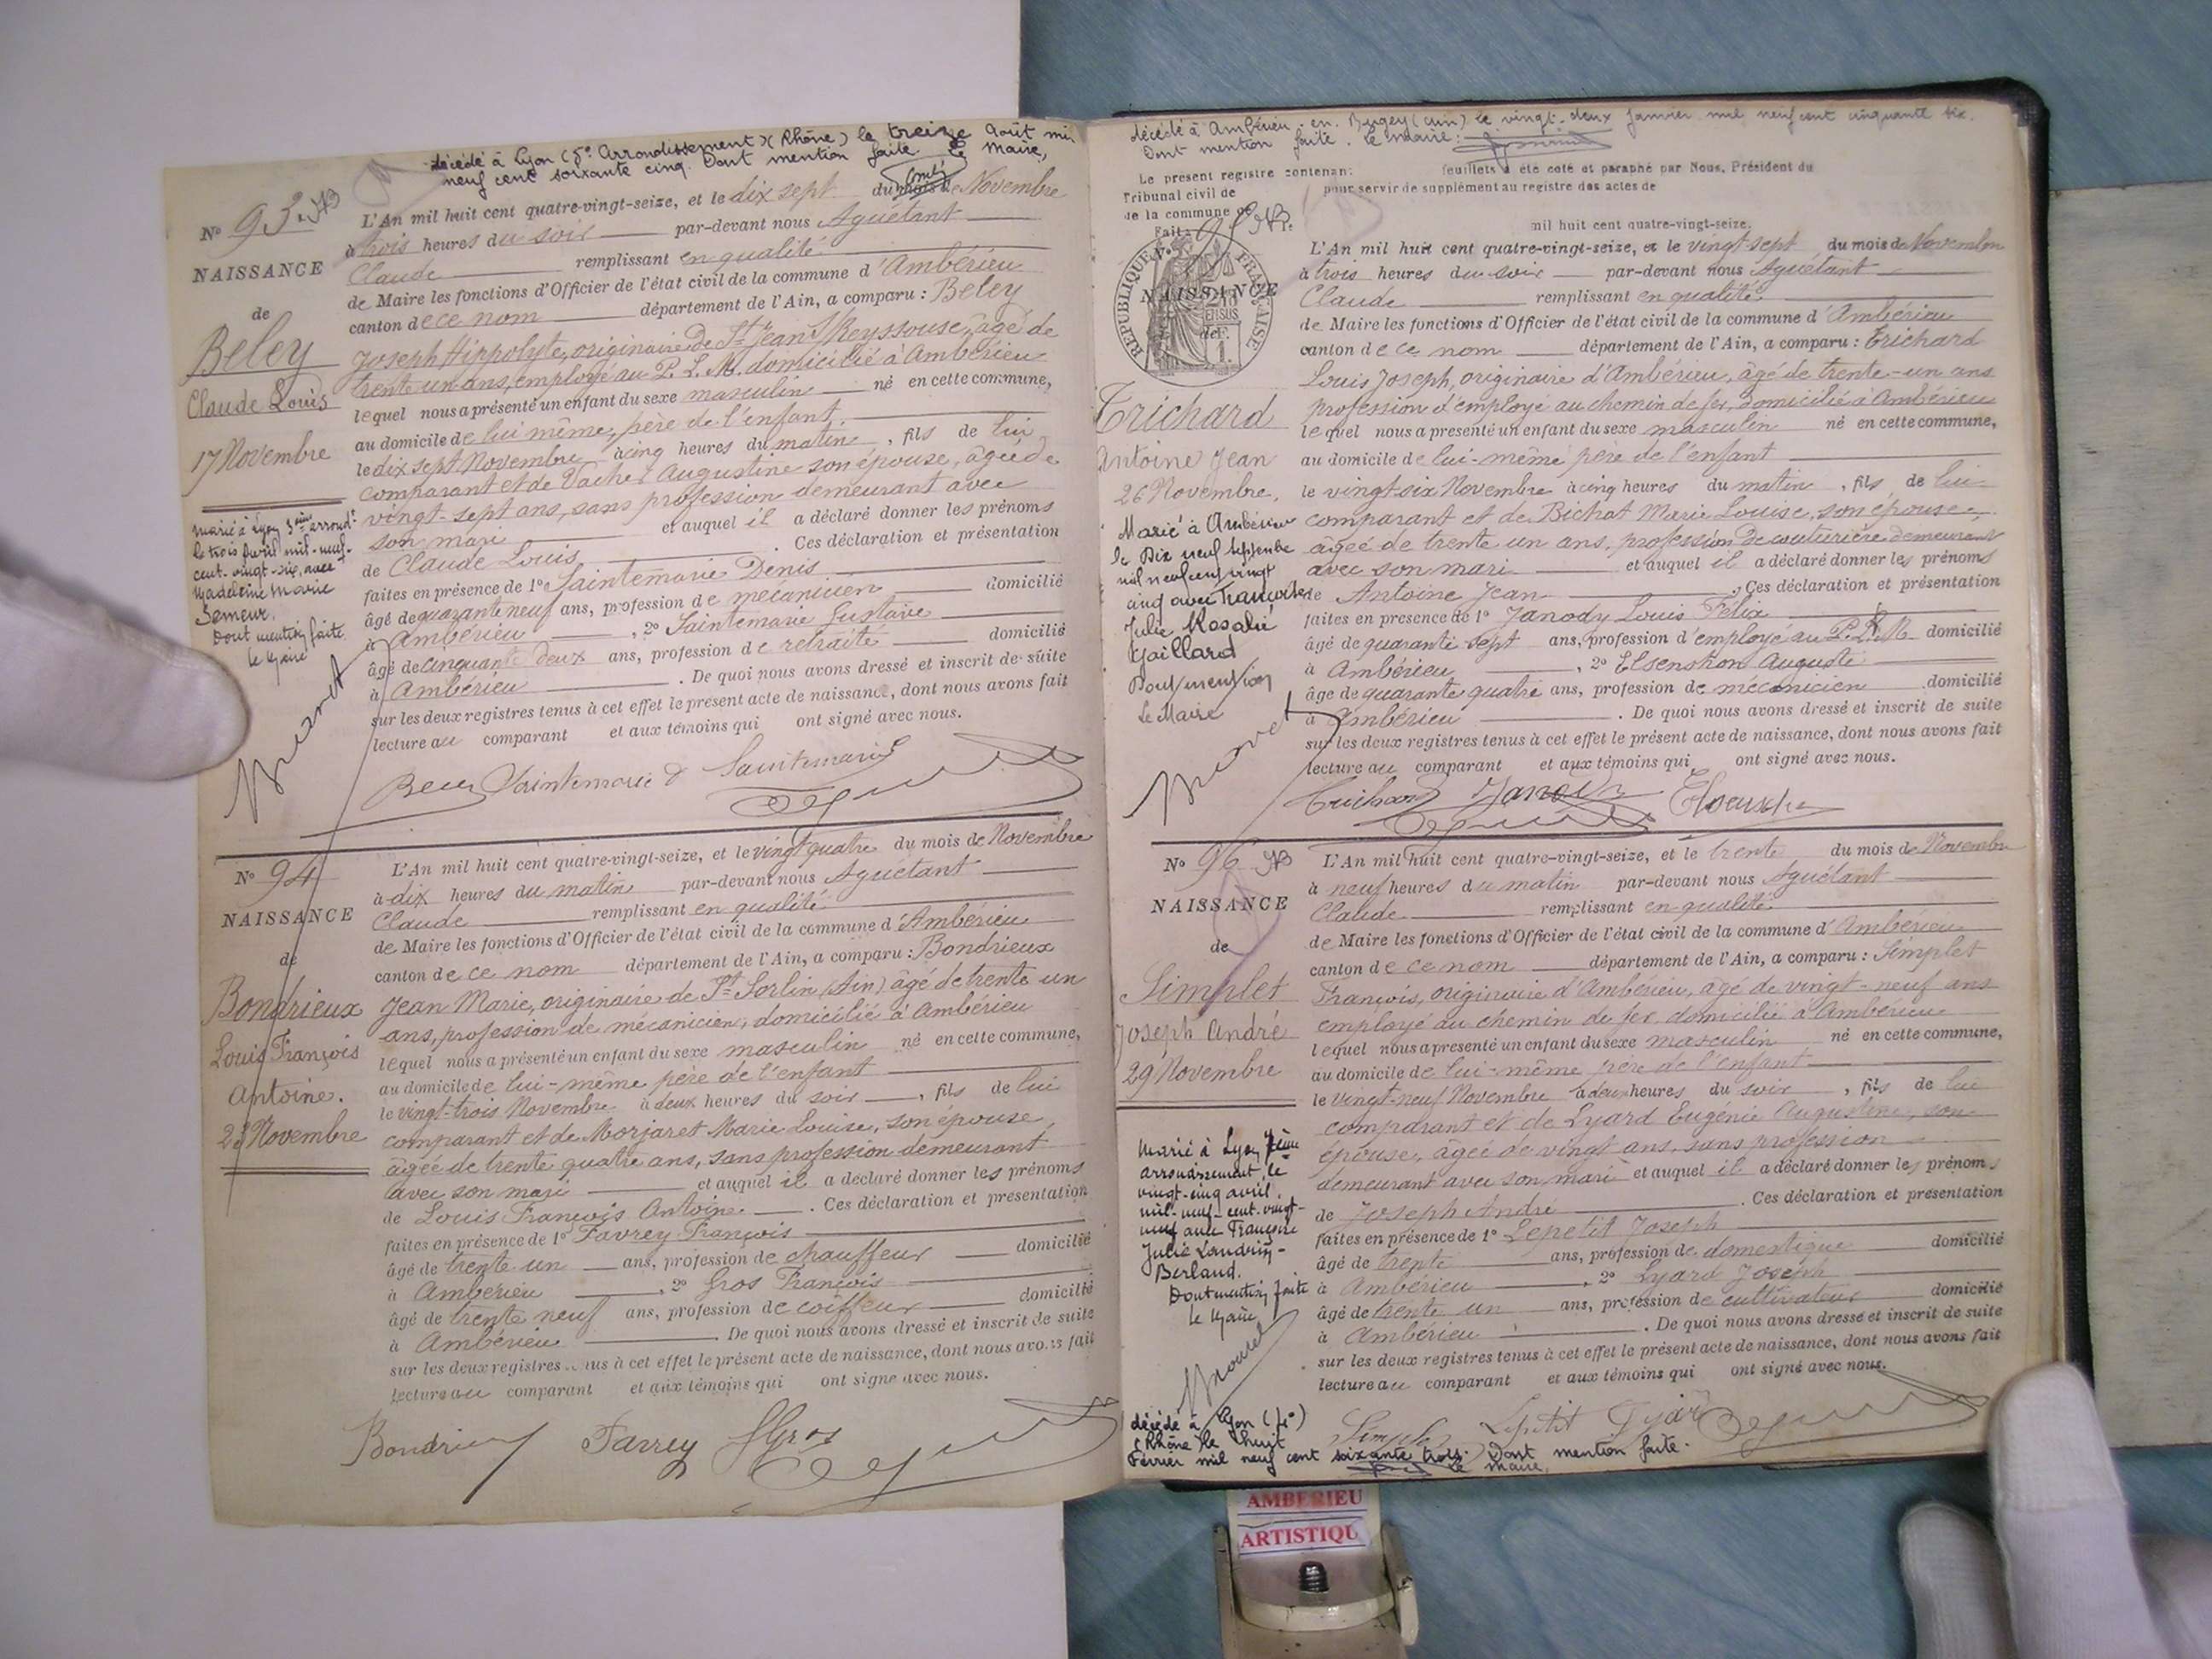 décédé à Lyon (5e Arrondissement) (Rhône) le treize Août mil
neuf cent soixante cinq. Dont mention faite. Le Maire,
No 93
NAISSANCE
de
Beley
Claude Louis
17 Novembre
L'An mil huit cent quatre-vingt-seize, et le dix sept du mois de Novembre
à trois heures du soir par-devant nous Aguétant
Claude remplissant en qualité
de Maire les fonctions d'Officier de l'état civil de la commune d'Ambérieu
canton de ce nom département de l'Ain, a comparu : Beley
Joseph Hippolyte, originaire de St Jean s/ Reyssouze, âgé de
trente un ans, employé au P. L. M. domicilié à Ambérieu
lequel nous a présenté un enfant du sexe masculin né en cette commune,
au domicile de lui même, père de l'enfant,
le dix sept Novembre à cinq heures du matin, fils de lui
comparant et de Vacher Augustine son épouse, âgée de
vingt-sept ans, sans profession demeurant avec
son mari et auquel il a déclaré donner les prénoms
de Claude Louis. Ces déclaration et présentation
faites en présence de 1º Saintemarie Denis
âgé de quarante neuf ans, profession de mécanicien domicilié
à Ambérieu, 2º Saintemarie Gustave
âgé de cinquante deux ans, profession de retraité domicilié
à Ambérieu. De quoi nous avons dressé et inscrit de suite
sur les deux registres tenus à cet effet le présent acte de naissance, dont nous avons fait
lecture au comparant et aux témoins qui ont signé avec nous.
Marié à Lyon 3ème arrondt
le trois Avril mil-neuf-
cent-vingt-six, avec
Madeleine Marie
Semeur.
Dont mention faite
Le Maire
Saintemarie D Saintemarie
No 94
NAISSANCE
de
Bondrieux
Louis François
Antoine.
23 Novembre
L'An mil huit cent quatre-vingt-seize, et le vingt quatre du mois de Novembre
à dix heures du matin par-devant nous Aguétant
Claude remplissant en qualité
de Maire les fonctions d'Officier de l'état civil de la commune d'Ambérieu
canton de ce nom département de l'Ain, a comparu : Bondrieux
Jean Marie, originaire de St Sorlin (Ain) âgé de trente un
ans, profession de mécanicien, domicilié à Ambérieu
lequel nous a présenté un enfant du sexe masculin né en cette commune,
au domicile de lui-même père de l'enfant
le vingt-trois Novembre à deux heures du soir, fils de lui
comparant et de Morjaret Marie Louise, son épouse,
âgée de trente quatre ans, sans profession demeurant
avec son mari et auquel il a déclaré donner les prénoms
de Louis François Antoine. Ces déclaration et présentation
faites en présence de 1º Favrey François
âgé de trente un ans, profession de chauffeur domicilié
à Ambérieu, 2º Gros François
âgé de trente neuf ans, profession de coiffeur domicilié
à Ambérieu. De quoi nous avons dressé et inscrit de suite
sur les deux registres tenus à cet effet le présent acte de naissance, dont nous avons fait
lecture au comparant et aux témoins qui ont signé avec nous.
Bondrieux Favrey F Gros
décédé à Ambérieu-en-Bugey (Ain) le vingt-deux Janvier mil neuf cent cinquante six.
Dont mention faite. Le Maire :
Le présent registre contenant feuillets a été coté et paraphé par Nous, Président du
Tribunal civil de pour servir de supplément au registre des actes de
de la commune de
Fait à
mil huit cent quatre-vingt-seize.
RÉPUBLIQUE FRANÇAISE
No 95
NAISSANCE
Trichard
Antoine Jean
26 Novembre.
L'An mil huit cent quatre-vingt-seize, et le vingt sept du mois de Novembre
à trois heures du soir par-devant nous Aguétant
Claude remplissant en qualité
de Maire les fonctions d'Officier de l'état civil de la commune d'Ambérieu
canton de ce nom département de l'Ain, a comparu : Trichard
Louis Joseph, originaire d'Ambérieu, âgé de trente-un ans
profession d'employé au chemin de fer, domicilié à Ambérieu
lequel nous a présenté un enfant du sexe masculin né en cette commune,
au domicile de lui-même père de l'enfant
le vingt-six Novembre à cinq heures du matin, fils de lui
comparant et de Bichat Marie Louise, son épouse,
âgée de trente un ans, profession de couturière demeurant
avec son mari et auquel il a déclaré donner les prénoms
de Antoine Jean. Ces déclaration et présentation
faites en présence de 1º Janody Louis Félix
âgé de quarante sept ans, profession d'employé au P.L.M. domicilié
à Ambérieu, 2º Elsenshon Auguste
âgé de quarante quatre ans, profession de mécanicien domicilié
à Ambérieu. De quoi nous avons dressé et inscrit de suite
sur les deux registres tenus à cet effet le présent acte de naissance, dont nous avons fait
lecture au comparant et aux témoins qui ont signé avec nous.
Marié à Ambérieu
le Dix neuf Septembre
mil neuf cent vingt
cinq avec Françoise
Julie Rosalie
Gaillard
Dont mention
Le Maire
Trichard Janody
No 96
NAISSANCE
de
Simplet
Joseph André
29 Novembre
L'An mil huit cent quatre-vingt-seize, et le trente du mois de Novembre
à neuf heures du matin par-devant nous Aguétant
Claude remplissant en qualité
de Maire les fonctions d'Officier de l'état civil de la commune d'Ambérieu
canton de ce nom département de l'Ain, a comparu : Simplet
François, originaire d'Ambérieu, âgé de vingt-neuf ans
employé au chemin de fer domicilié à Ambérieu
lequel nous a présenté un enfant du sexe masculin né en cette commune,
au domicile de lui-même père de l'enfant
le vingt-neuf Novembre à deux heures du soir, fils de lui
comparant et de Lyard Eugénie Augustine, son
épouse, âgée de vingt ans, sans profession
demeurant avec son mari et auquel il a déclaré donner les prénoms
de Joseph André. Ces déclaration et présentation
faites en présence de 1º Lepetit Joseph
âgé de trente ans, profession de domestique domicilié
à Ambérieu, 2º Lyard Joseph
âgé de trente un ans, profession de cultivateur domicilié
à Ambérieu. De quoi nous avons dressé et inscrit de suite
sur les deux registres tenus à cet effet le présent acte de naissance, dont nous avons fait
lecture au comparant et aux témoins qui ont signé avec nous.
Marié à Lyon
arrondissement, le
vingt-cinq avril,
mil-neuf-cent-vingt-
neuf avec Françoise
Julie
Berland.
Dont mention faite
Le Maire
Simplet Lepetit Lyard
décédé à Lyon (4e)
(Rhône le huit
Février mil neuf cent soixante trois. Dont mention faite.
Le Maire,
AMBERIEU
ARTISTIQU